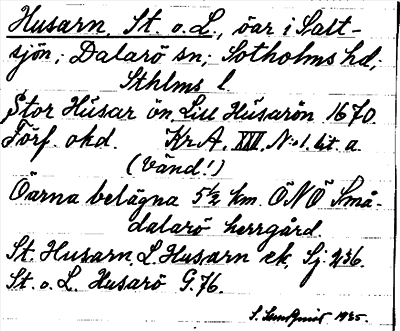 Husarn, St. o. L., öar i Salt-
sjön; Dalarö sn; Sotholms hd;
Sthlms l.
Stor Húsar ön, Lill Húsarön 1670
Förf. okd. Kr.A. XXII, N:o 1. lit. a
(Vänd!)
Öarna belägna 5½ km. ÖNÖ Små-
dalarö herrgård.
St. Husarn, L. Husarn ek, Sj. 236.
St. o. L. Husarö G. 76.
1935.